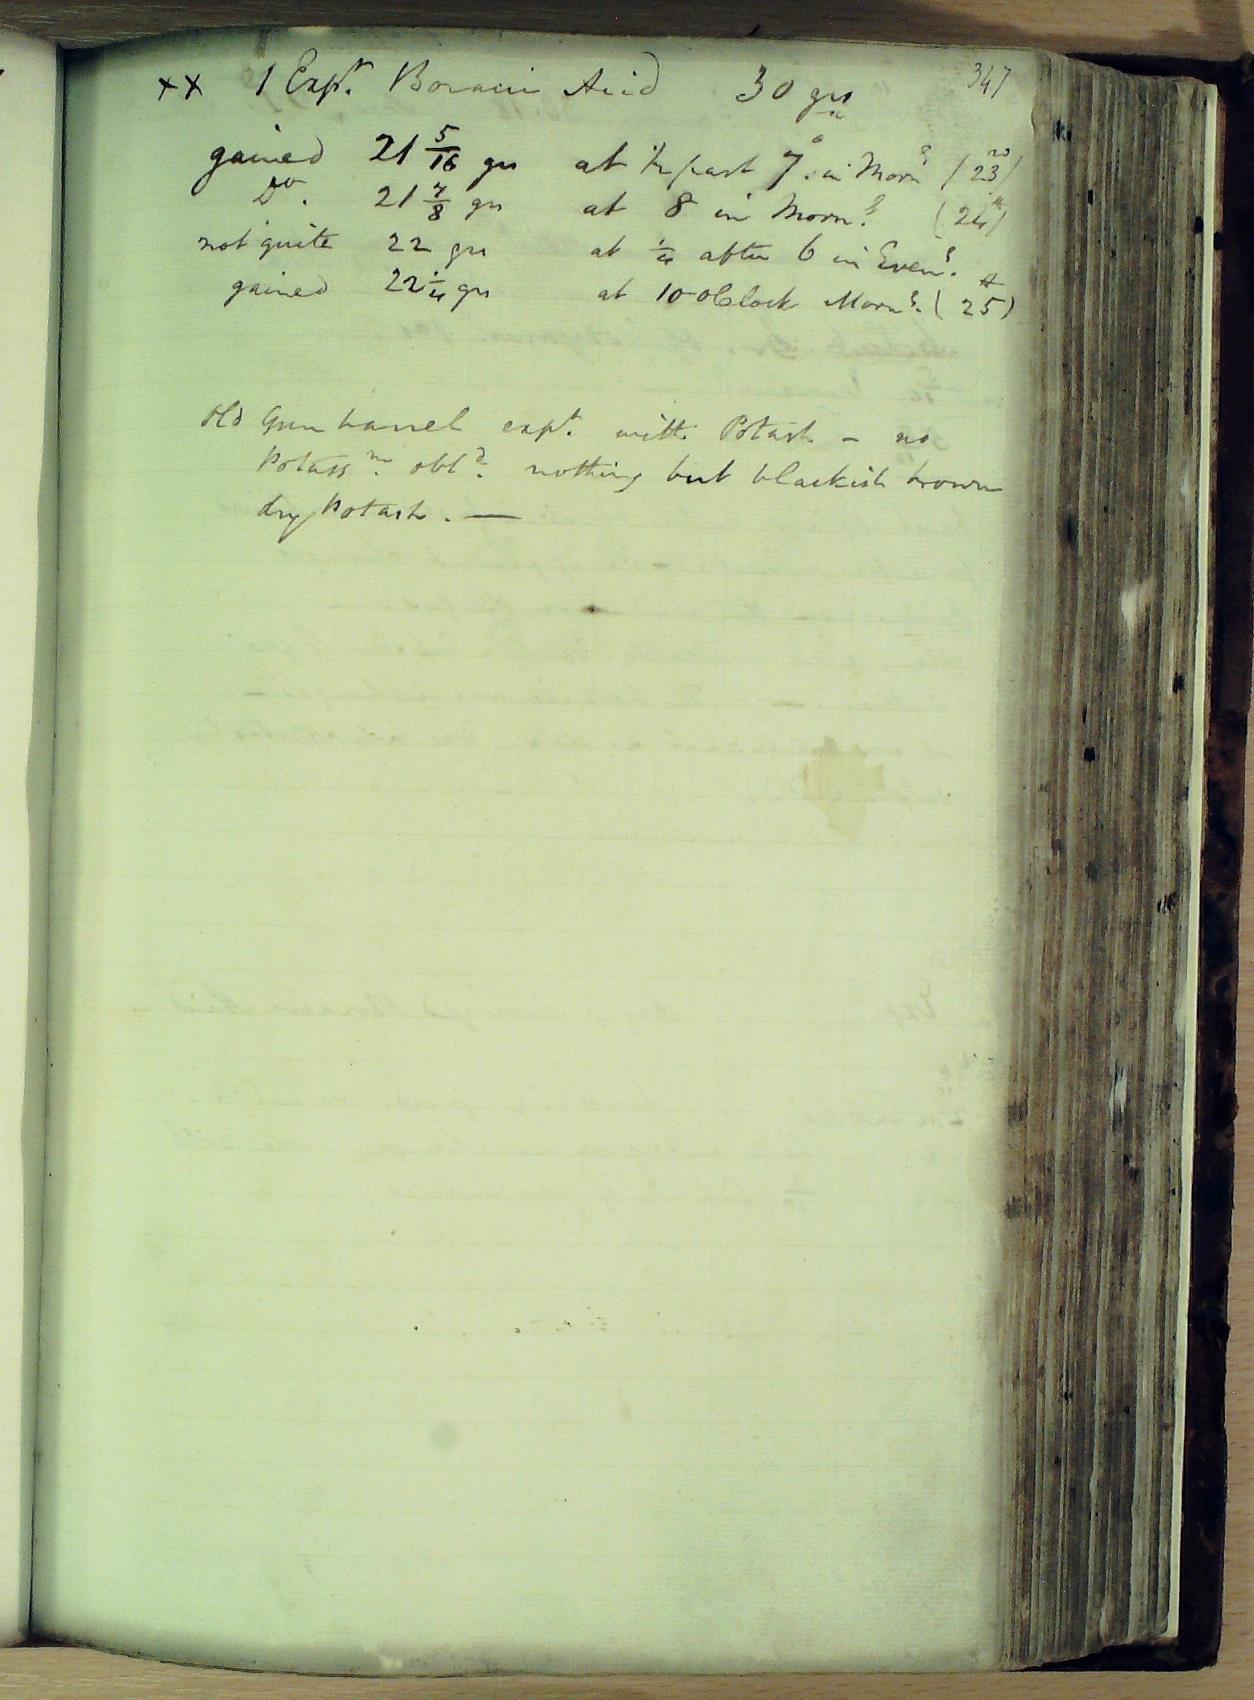 347
xx 1 Expt. Boracic Acid 30 grs
gained 21 5/16 grs at 1/2 past 7 in Morng (23)
Do. 21 7/8 grs at 8 in Morng (24)
not quite 22 grs at 1/4 after 6 in Eveng.
gained 22 1/4 grs at 10 oClock Morng. (25)
Old Gun barrel expt. with Potash - no
Potassm. obtd. nothing but blackish brown
dry Potash. —